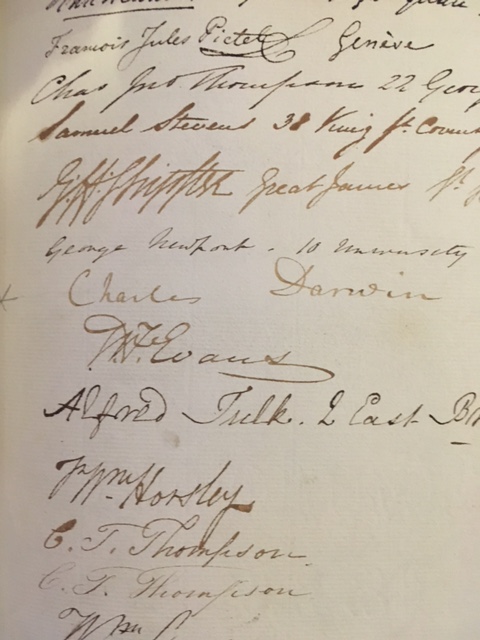 François Jules Pictet Genève
Chas Jno Thompson 22 Geor
Samuel Stevens 38 King St. Coven
Great James St.
George Newport. 10 University
Charles Darwin
W. F. Evans
Alfred Tulk. 2 East
Jn Wm. Horsley
C. T. Thompson
C. T. Thompson
Wm